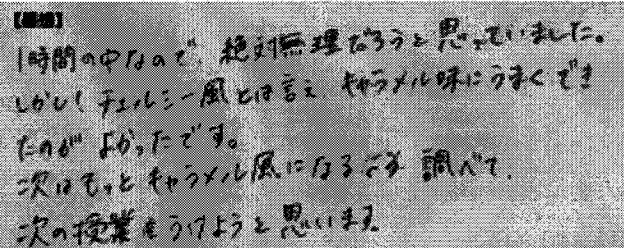 【感想】
1時間の中なので、絶対無理だろうと思っていました。
しかし!チェルシー風とは言え、キャラメル味にうまくでき
たのがよかったです。
次はもっとキャラメル風になる 調べて、
次の授業をうけようと思います。